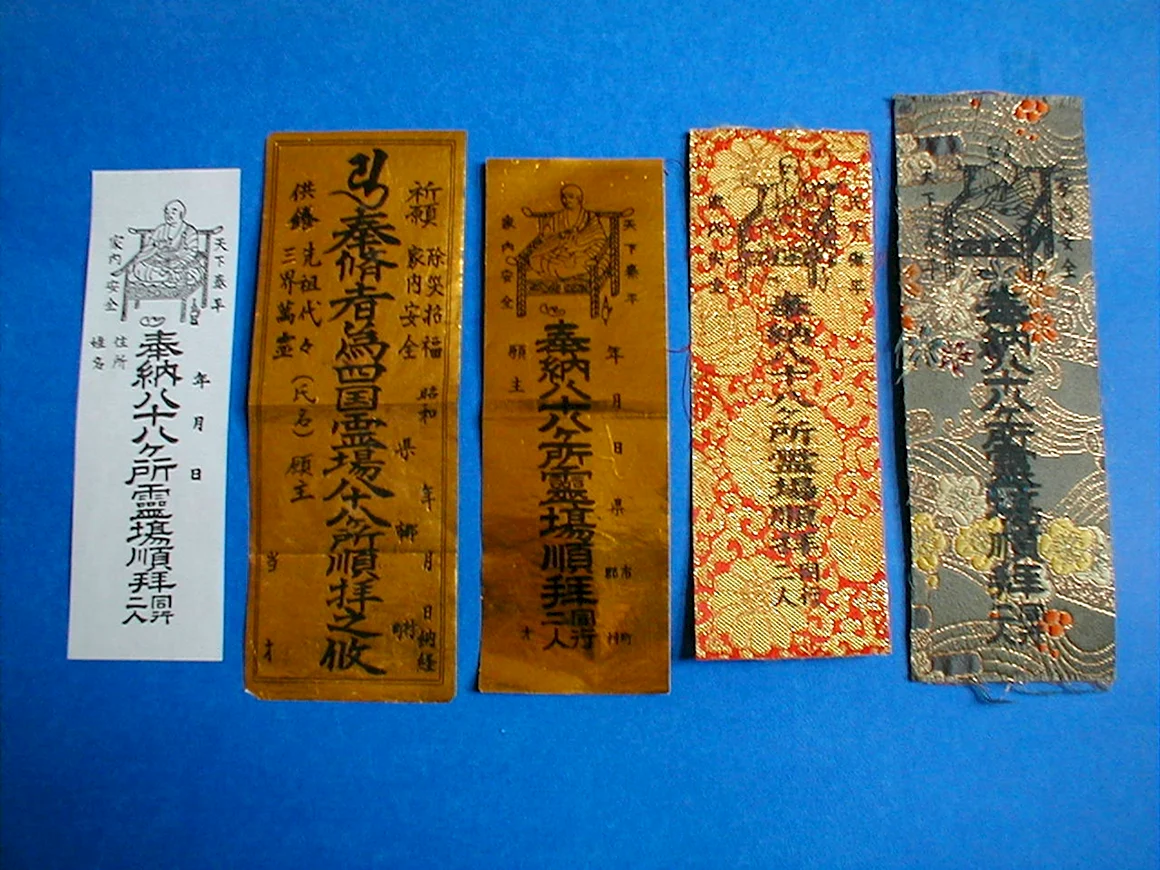 天下泰平
家内安全
奉納八十八ヶ所霊場順拝同行二人
年月日
住所
姓名
祈願
除災招福
家内安全
昭和 年 月 日納経
県 郡 村
奉脩者為四国霊場八十八ヶ所順拝之攸
供養
先祖代々
三界萬霊
(氏名)願主
当 才
天下泰平
家内安全
年月日
県 市郡 町村
奉納八十八ヶ所霊場順拝同行二人
願主
才
奉納八十八ヶ所霊場順拝同行二人
天下
奉納八十八ヶ所霊場順拝同行二人